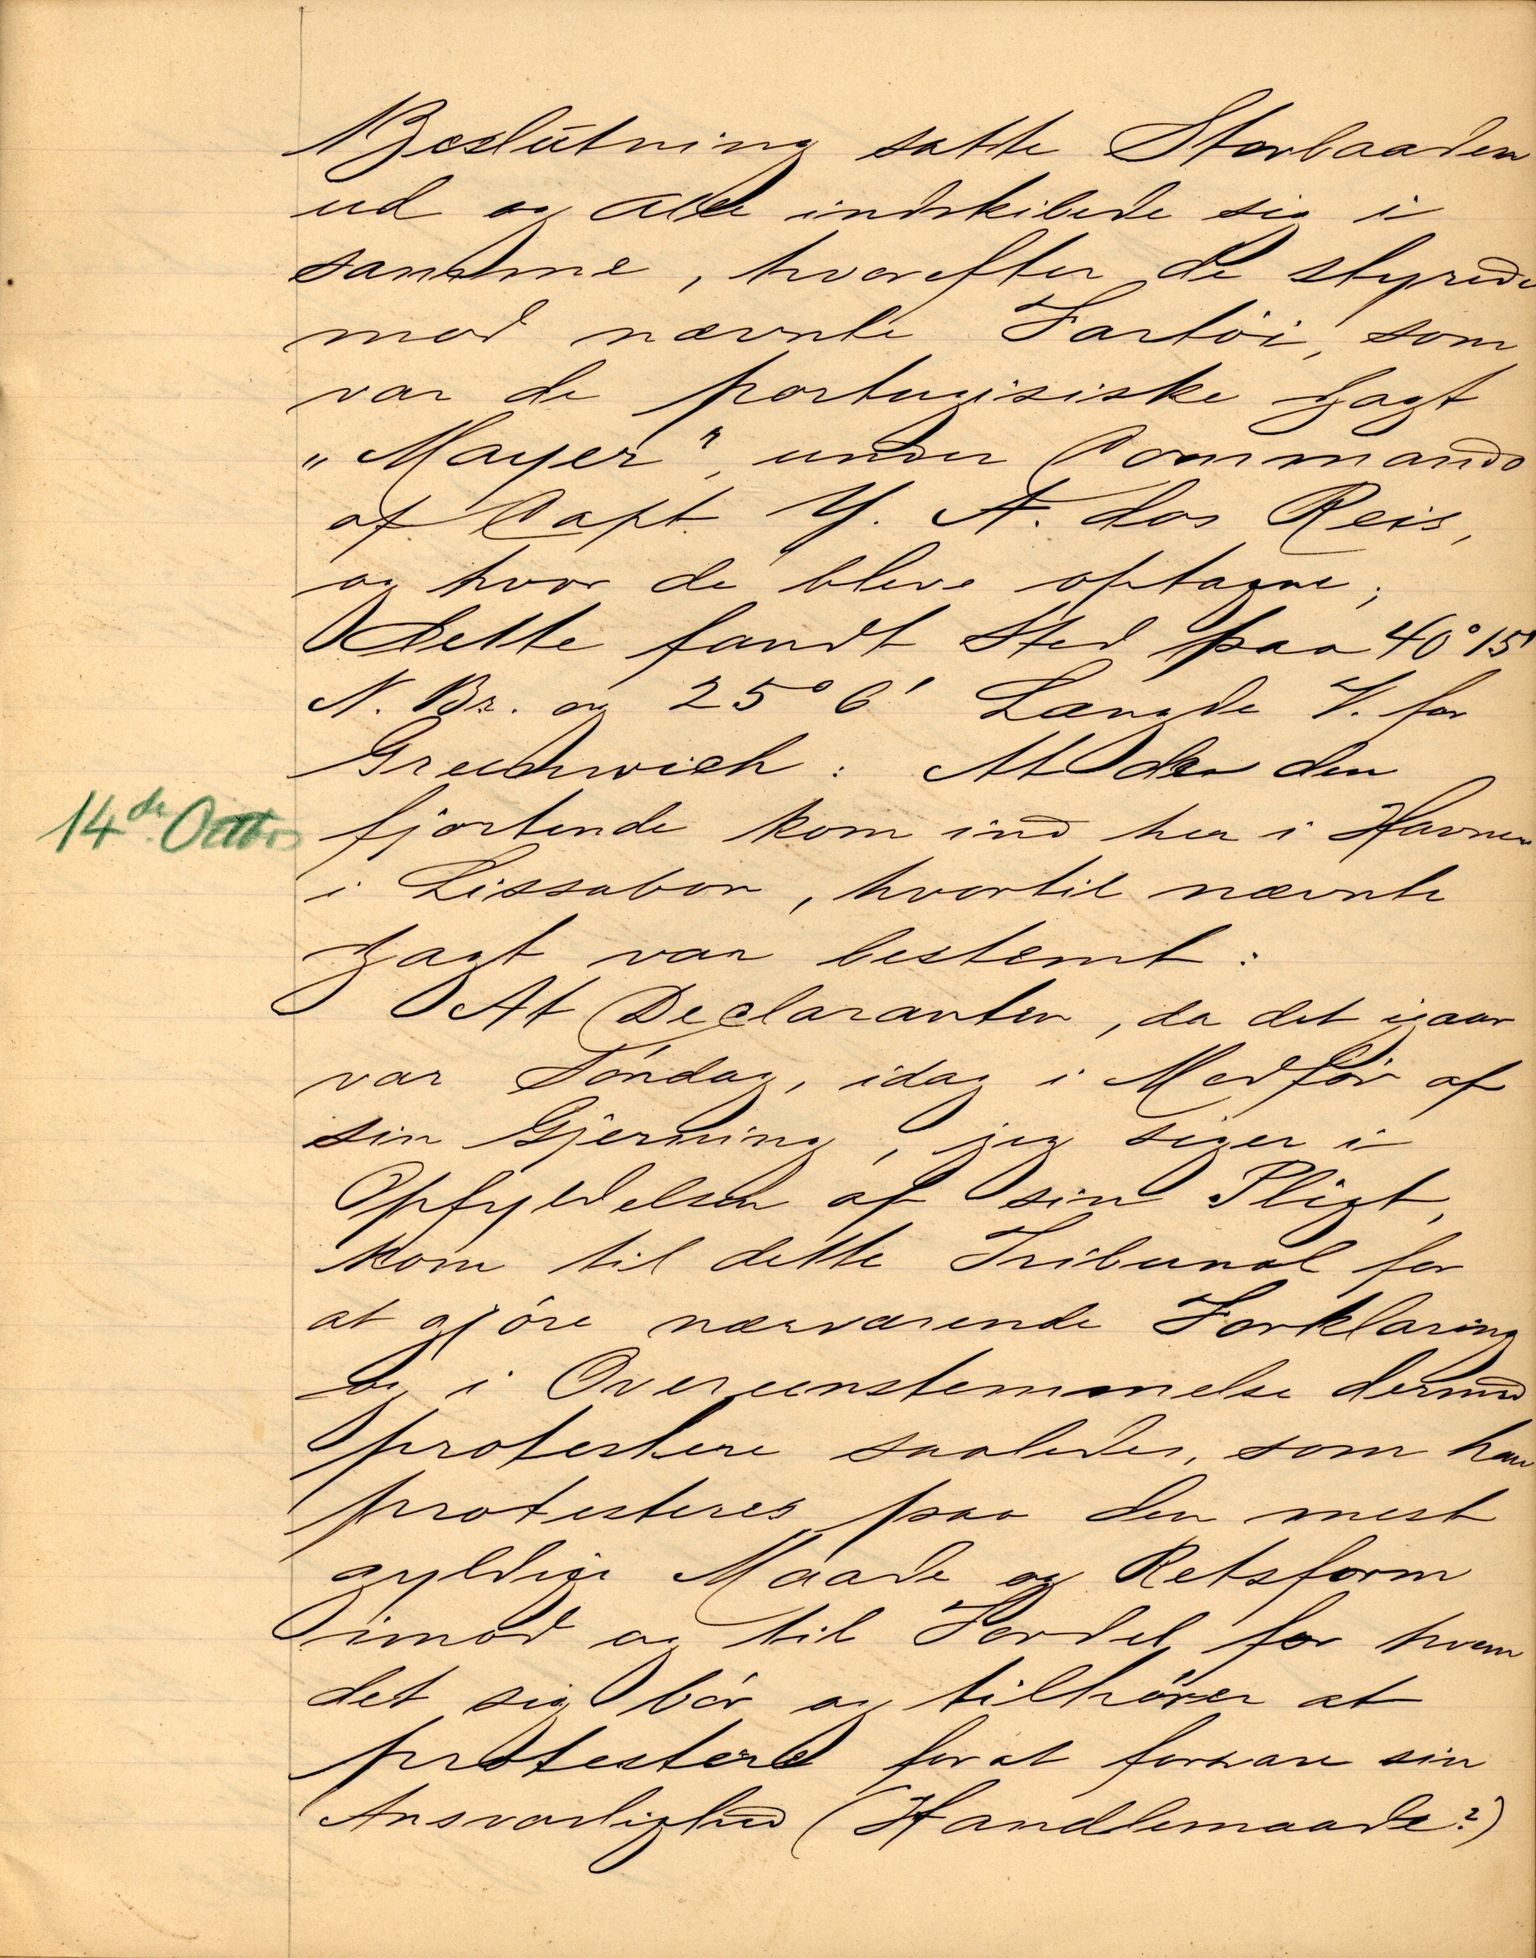 Beslutning satte Storbaaden
ud og alle indskibede sig i
samme, hvorefter de styrede
mod nævnte Fartöi, som
var de portugisiske Jagt
„Mayer", under Commando
af Capt. Y. A. dos Reis,
og hvor de bleve optagne;
Dette fandt Sted paa 40° 15'
N. Br. og 25° 6' Længde V. for
Greenwich: At de den
14de Octbr.
fjortende kom ind her i Havnen
i Lissabon, hvortil nævnte
Jagt var bestemt:
At Declaranten, da det igaar
var Söndag, idag i Medför af
sin Gjerning, jeg siger i
Opfyldelsen af sin Pligt,
kom til dette Tribunal for
at gjöre nærværende Forklaring
og i Overeenstemmelse dermed
protestere saaledes, som han
protesteres paa den mest
gyldige Maade og Retsform
imod og til Fordel for hvem
det sig bör og tilhörer at
protestere for at forsvare sin
Ansvarlighed (Handlemaade?)